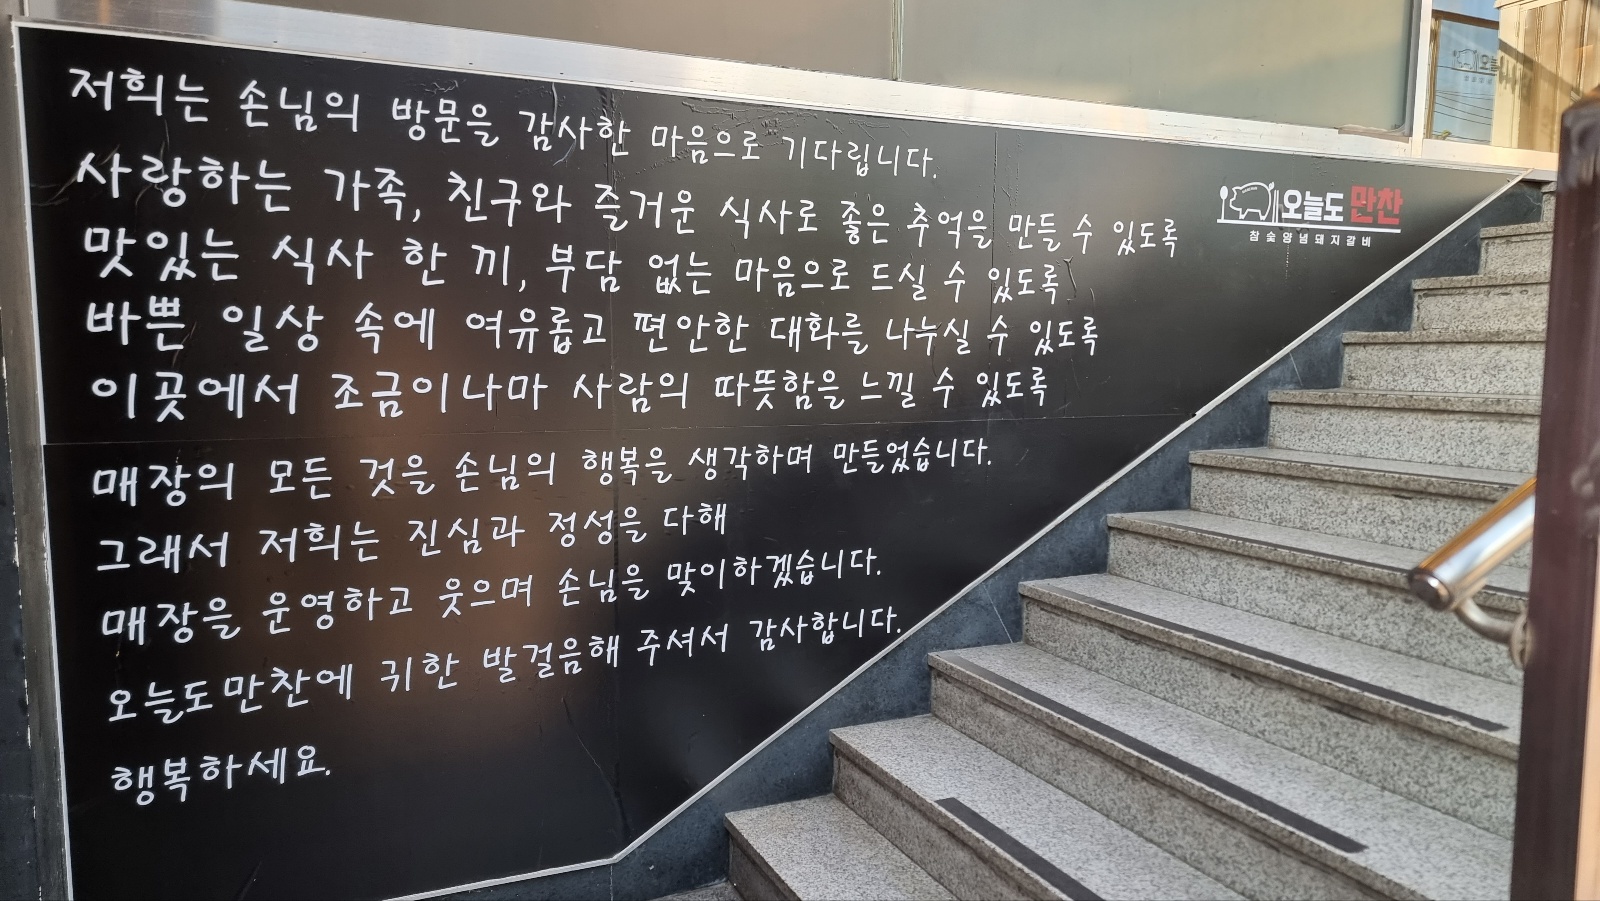 저희는 손님의 방문을 감사한 마음으로 기다립니다.
사랑하는 가족, 친구와 즐거운 식사로 좋은 추억을 만들 수 있도록
맛있는 식사 한 끼, 부담 없는 마음으로 드실 수 있도록
바쁜 일상 속에 여유롭고 편안한 대화를 나누실 수 있도록
이곳에서 조금이나마 사람의 따뜻함을 느낄 수 있도록
매장의 모든 것을 손님의 행복을 생각하며 만들었습니다.
그래서 저희는 진심과 정성을 다해
매장을 운영하고 웃으며 손님을 맞이하겠습니다.
오늘도만찬에 귀한 발걸음해 주셔서 감사합니다.
행복하세요.
오늘도 만찬
참숯양념돼지갈비